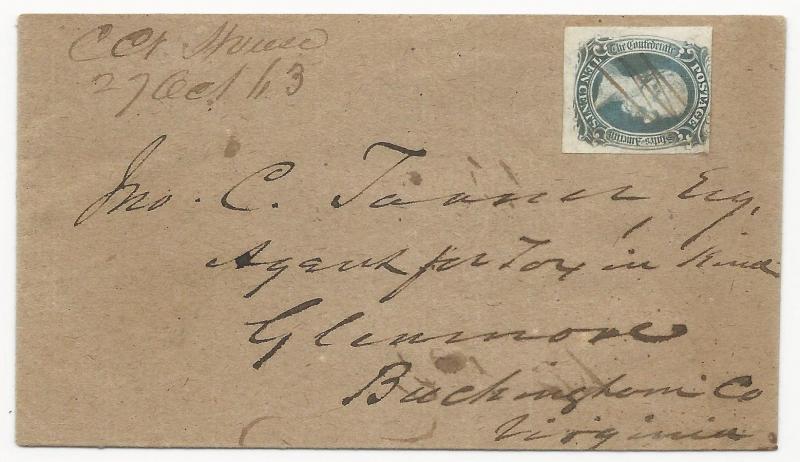 C Ct House
27 Oct 63
The Confederate
States America
POSTAGE
TEN CENTS
Jno. C. Turner Esq.
Agent for Tax in Kind
Glenmore
Buckingham Co
Virginia